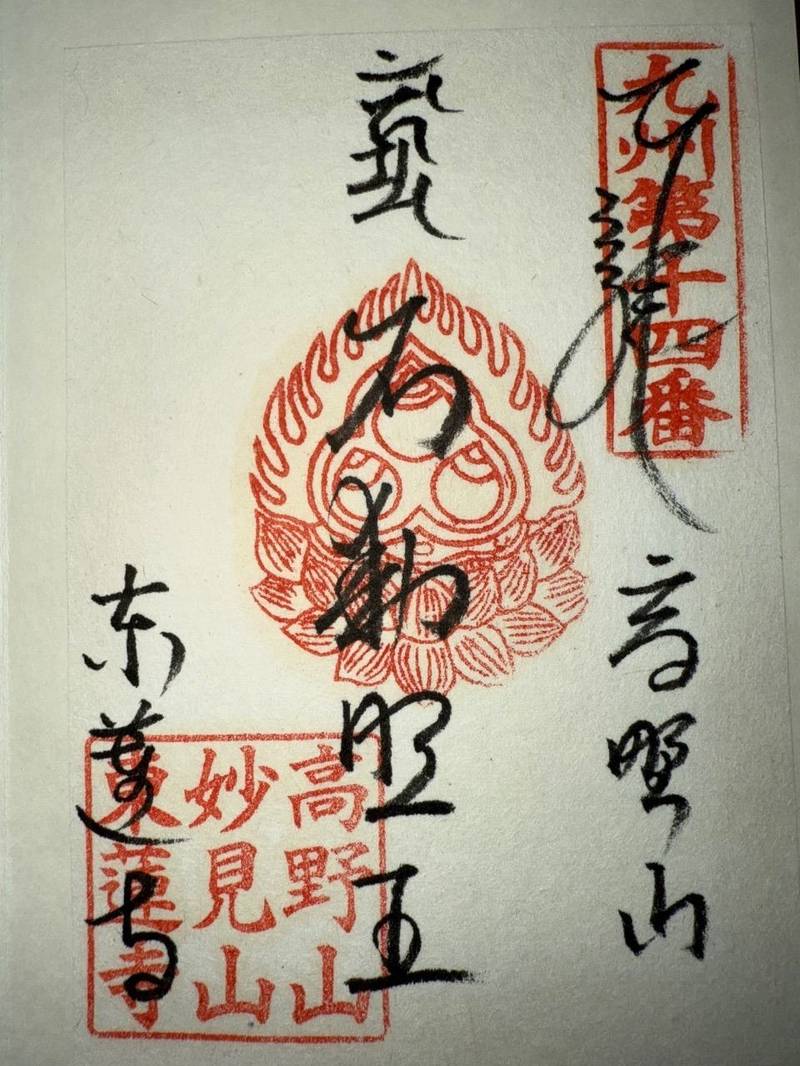 九州第十四番
高野山
不動明王
東蓮寺
高野山
妙見山
東蓮寺